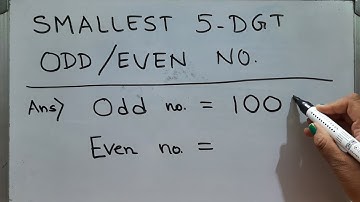 SMALLEST 5-DGT
ODD/EVEN NO.
Ans) Odd no. = 100
Even no. =